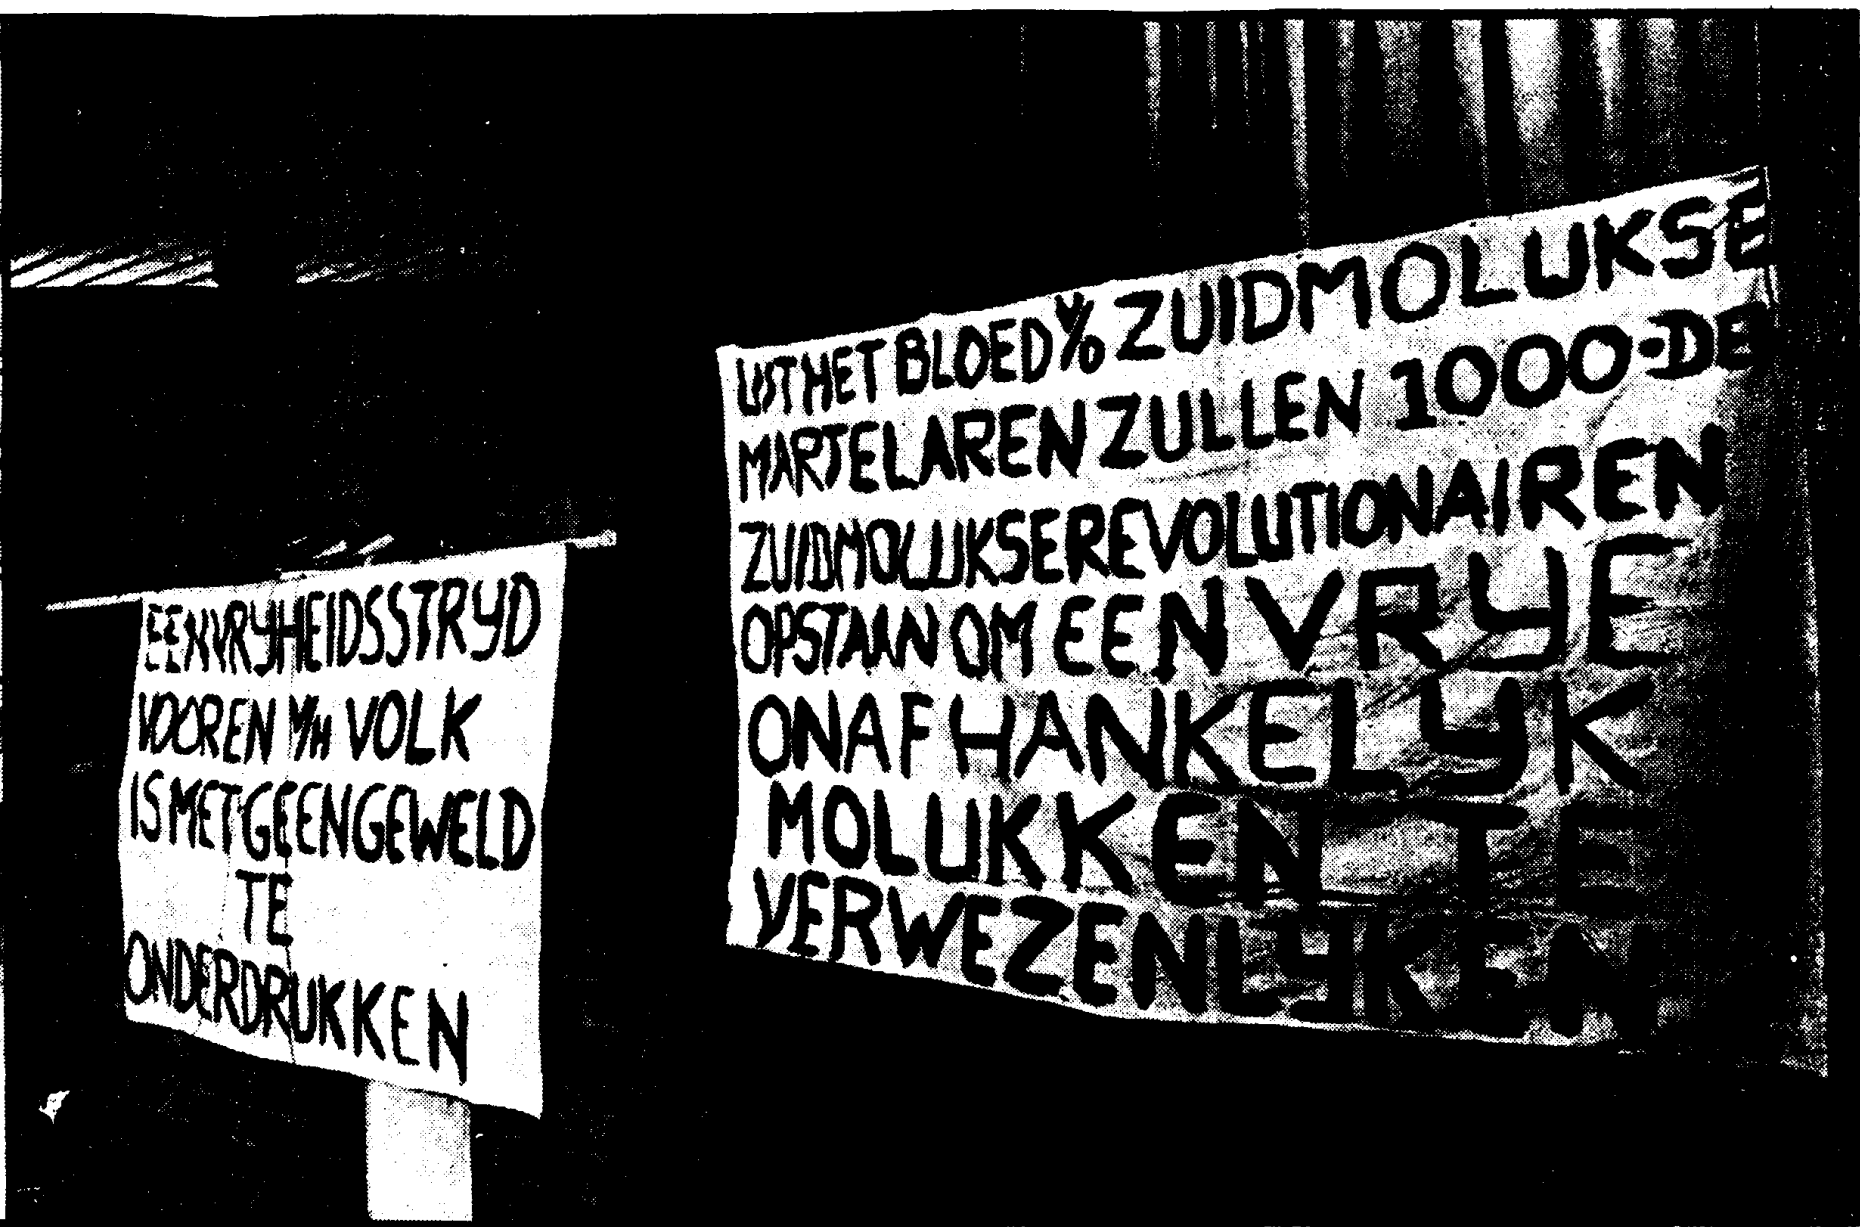 EEN VRYHEIDSSTRYD
VOOR EN V/H VOLK
IS MET GEEN GEWELD
TE
ONDERDRUKKEN
UIT HET BLOED V/D ZUIDMOLUKSE
MARTELAREN ZULLEN 1000-DE
ZUIDMOLUKSE REVOLUTIONAIREN
OPSTAAN OM EEN VRYE
ONAFHANKELYK
MOLUKKEN TE
VERWEZENLYKEN